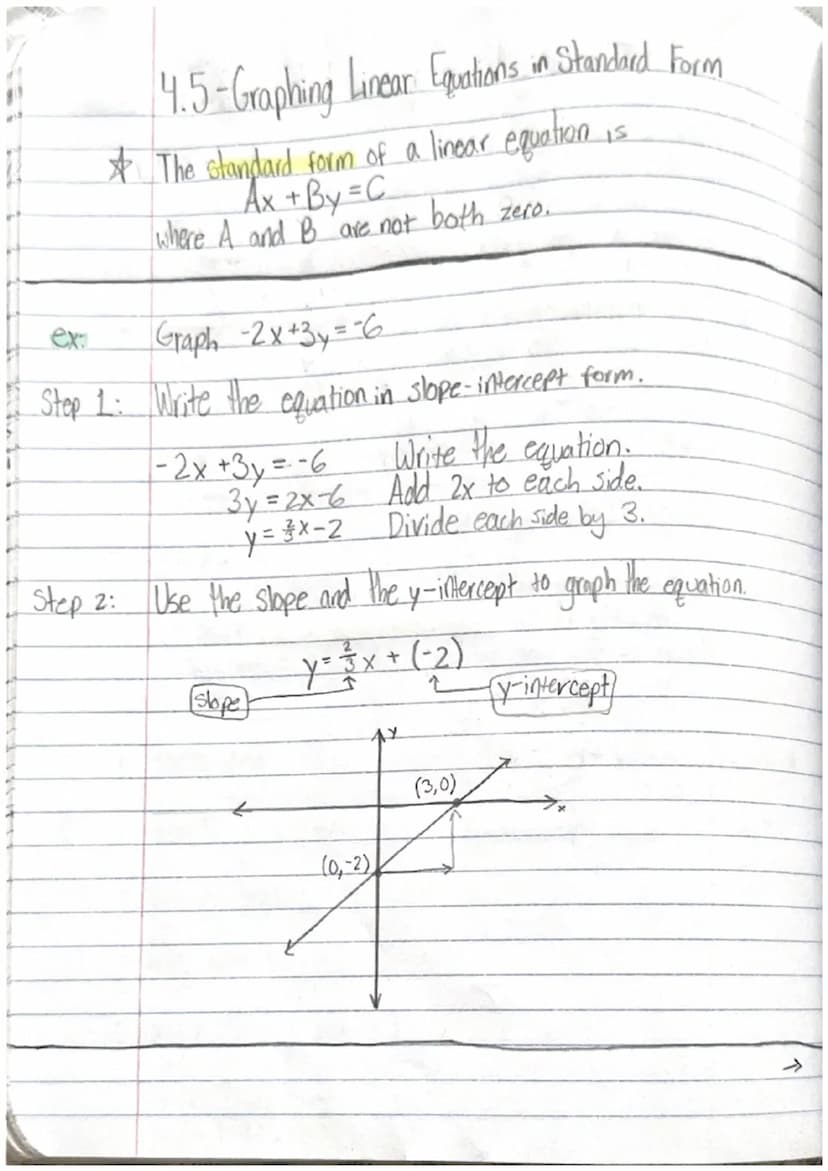 4.5-Graphing Linear Equations in Standard Form
☆ The standard form of a linear equation is
Ax + By = C
where A and B are not both zero.
ex: Graph -2x+3y=-6
Step 1: Write the equation in slope-intercept form.
-2x +3y = -6 Write the equation.
3y = 2x-6 Add 2x to each side.
y = 2/3x-2 Divide each side by 3.
Step 2: Use the slope and the y-intercept to graph the equation.
y = 2/3x + (-2)
slope y-intercept
y
(3,0)
x
(0,-2)
→